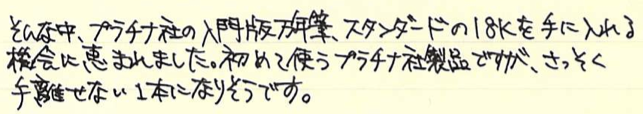 そんな中、プラチナ社の入門版万年筆、スタンダードの18Kを手に入れる
機会に恵まれました。初めて使うプラチナ社製品ですが、さっそく
手離せない1本になりそうです。